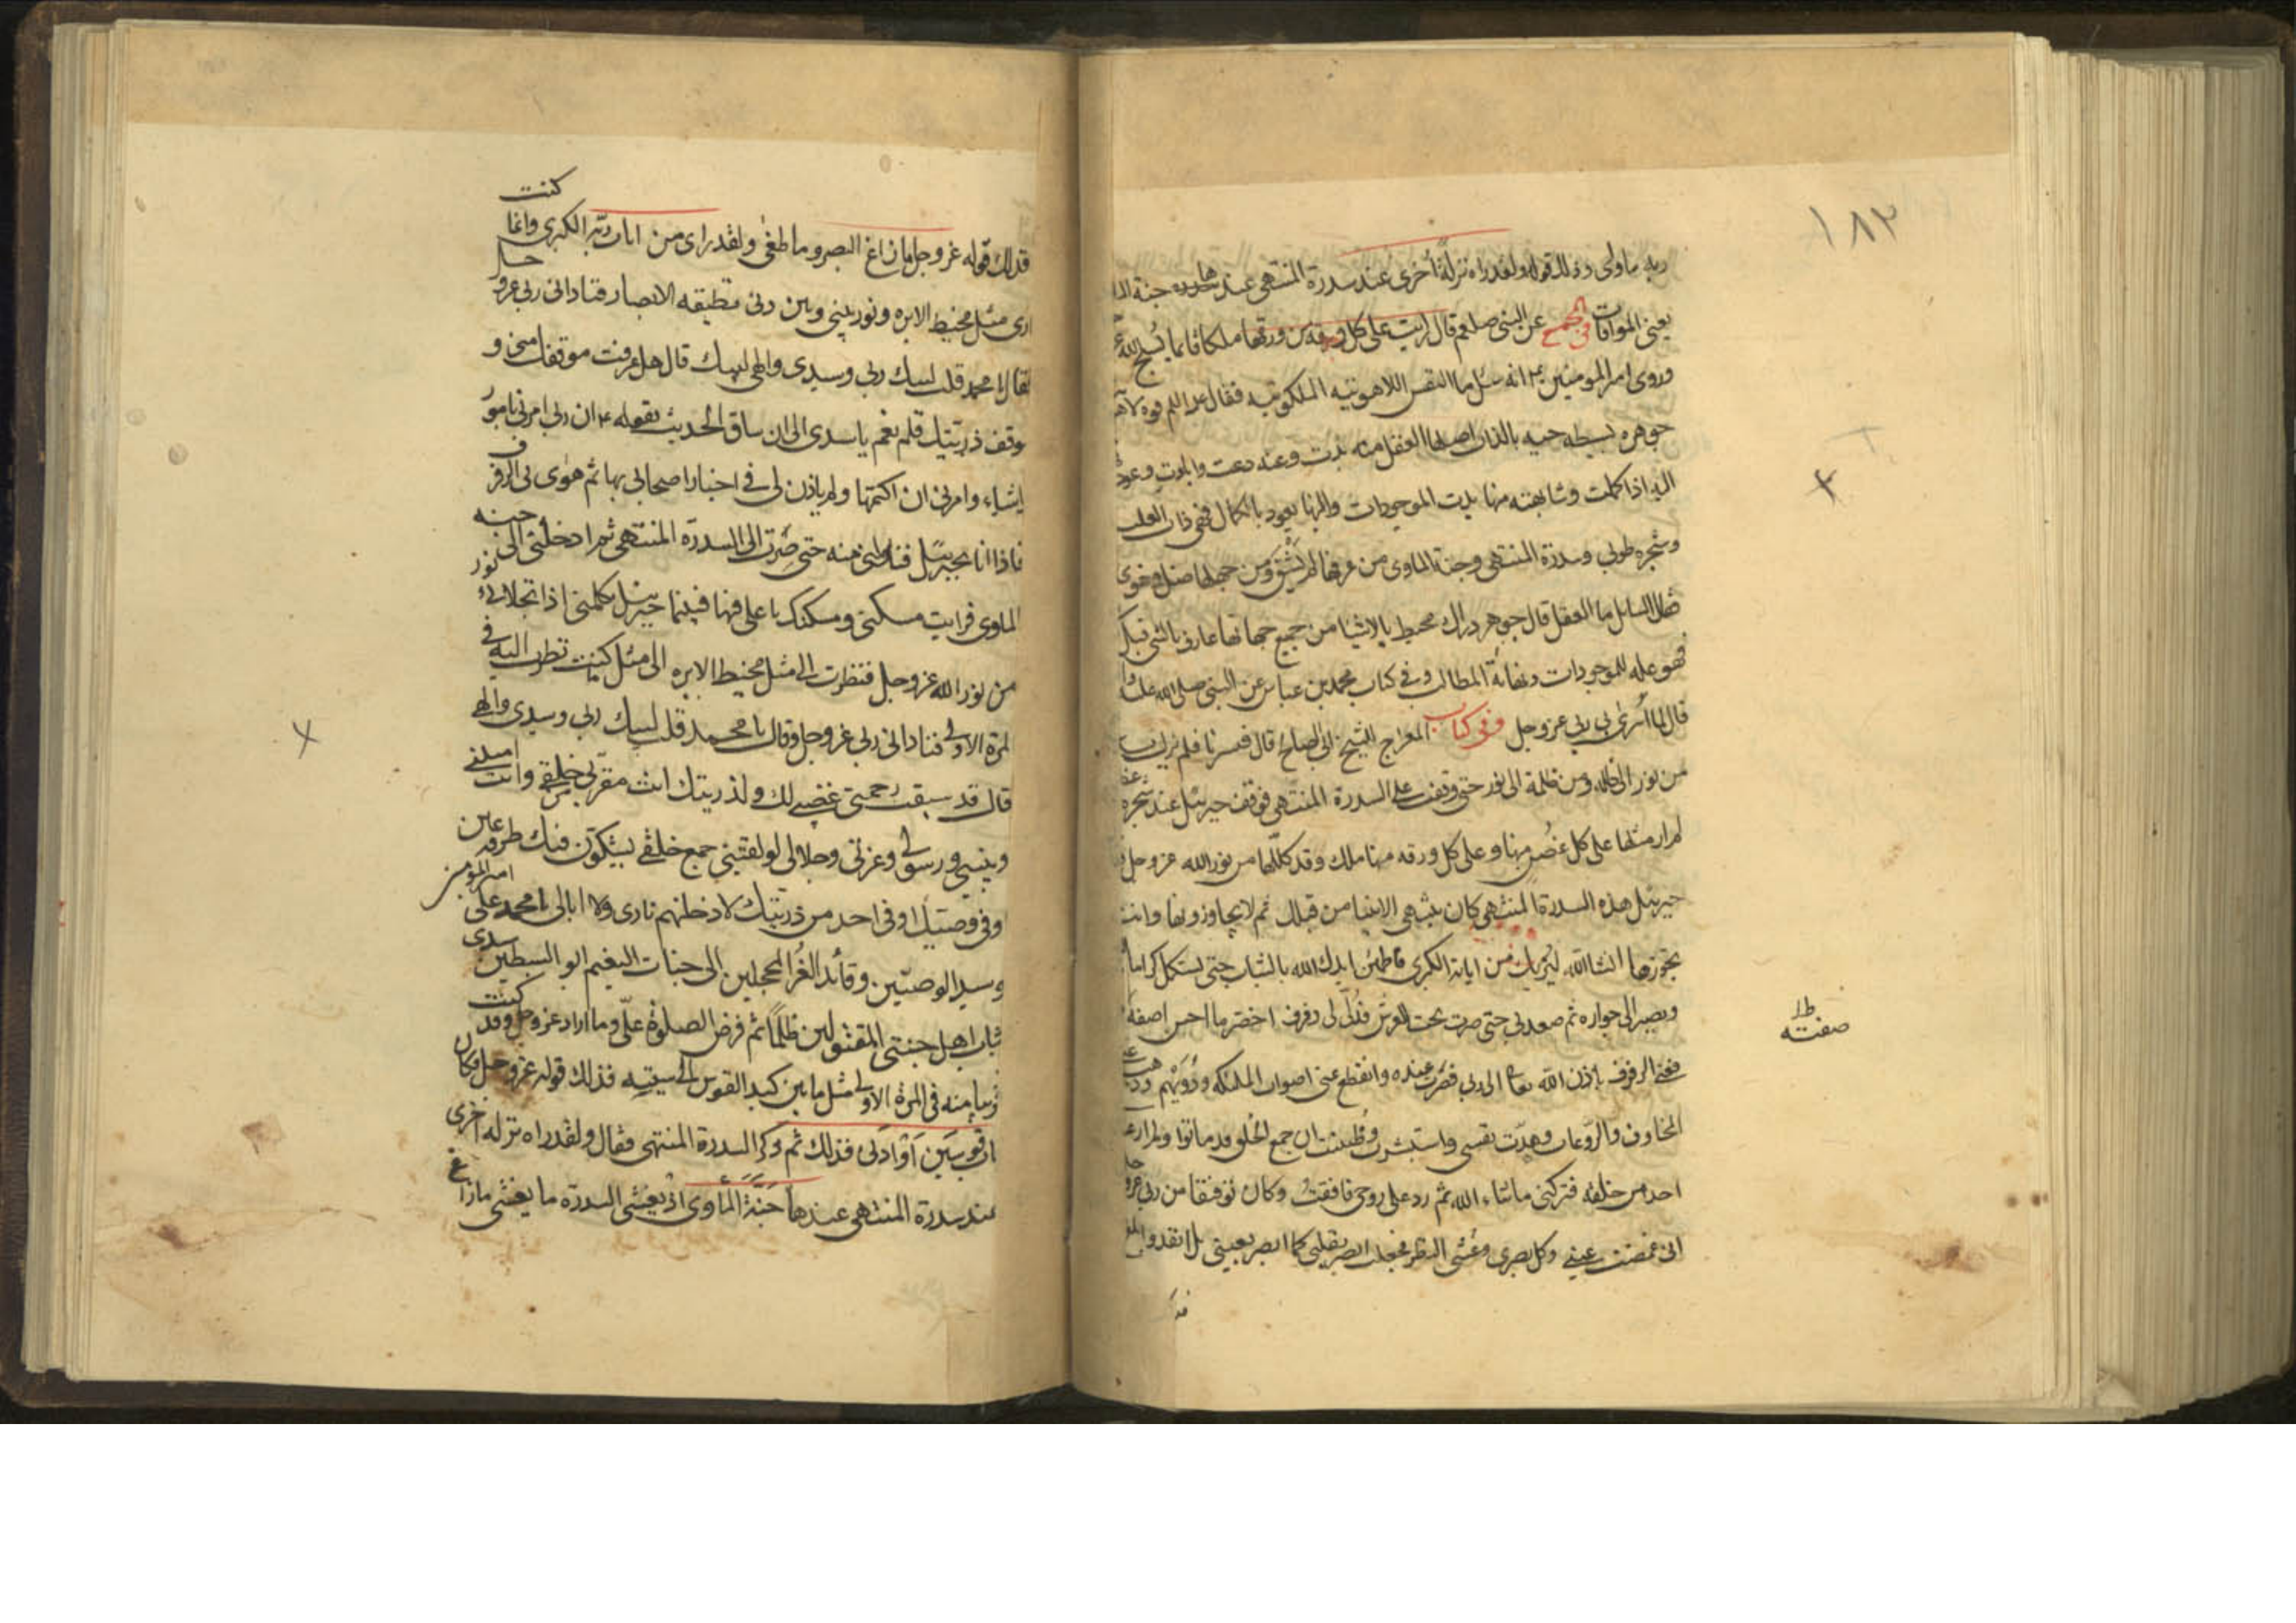 ١٨٣
ربه ما اوحى وذلك قوله ولقد راه نزلةً أخرى عند سدرة المنتهى عندها جنة
يعنى الموافات فى المجمع عن النبى صلعم قال رايت على كل ورقة من ورقها ملكا قائما يسبح الله
وروى امير المومنين انه سئل ما النفس اللاهوتيه الملكوتيه فقال قوه
جوهره بسيطه حيه بالذات اصلها العقل منه بدت وعنه دعت
اليه اذا كملت وشابهته منها بدت الموجودات واليها يعود بالكمال فهى ذات
وشجره طوبى وسدرة المنتهى وجنة الماوى من عرفها لم يشق ومن جهلها ضل وغوى
فقال السايل ما العقل قال جوهر دراك محيط بالاشيا من جميع جهاتها عارف بالشى قبل
فهو علة للموجودات ونهاية المطالب وفى كتاب محمد بن عباس عن النبى صلى الله عليه
قال لما أُسرى بى ربى عزوجل وفى كتاب المعراج الشيخ ابى الصلح قال فسرنا فلم نزل
من نور الى ظلمة ومن ظلمة الى نور حتى وقفت على السدرة المنتهى فوقف جبرئيل عند شجره
لم ار مثلها على كل غُصن منها وعلى كل ورقه منها ملك وقد كللها من نور الله عز وجل
جبرئيل هذه السدرة المنتهى كان ينتهى الانبيا من قبلك ثم لا يجاوزونها وانت
تجوزها انشا الله ليُريك من اياته الكبرى فاطمئن ايدك الله بالثبات حتى تستكمل كرامات
وتصير الى جواره ثم صعد بى حتى صرت تحت العرش فدُلّى لى رفرف اخضر ما احسن اصفه
ط
صفته
فرفعنى الرفرف باذن الله الى ربى فصرت عنده وانقطع عنى اصوات الملئكه ودويّهم
المخاوف والروعات وهدت نفسى واستبشرت وظننت ان جميع الخلق قد ماتوا ولم ار
احد من خلقه فتركنى ماشاء الله ثم رد على روحى فافقت وكان توفيقا من ربى
انى غمضت عينى وكل بصرى وغشى النظر فجعلت ابصر بقلبى كما ابصر بعينى بل
كنت
فذلك قوله عزوجل ما زاغ البصر وما طغى ولقد راى من ايات ربه الكبرى وانما
ارى مثل مخيط الابره ونور بينى وبين ربى تطيقه الابصار فنادانى ربى عزو
فقال يا محمد قلت لبيك ربى وسيدى والهى لبيك قال هل عرفت موقفك منى و
موقف ذريتك قلت نعم يا سيدى الى ان ساق الحديث بقوله ان ربى امرنى بامور
اشياء وامرنى ان اكتمها ولم ياذن لى فى اخبار اصحابى بها ثم هوٰى بى الرفرف
فاذا انا بجبرئيل فتناولنى منه حتى صرت الى السدرة المنتهى ثم ادخلنى الى جنه
الماوى فرايت مسكنى ومسكنك يا على فيها فبينما جبرئيل يكلمنى اذا تجلا لى نور
من نور الله عزوجل فنظرت الى مثل مخيط الابره الى مثل كنت نظرت اليه فى
لمرة الاولى فنادانى ربى عزوجل وقال يا محمد قلت لبيك ربى وسيدى والهى
قال قد سبقت رحمتى غضبى لك ولذريتك انت مقربى خلقى وانت امينى
وحبيبى ورسولى وعزتى وجلالى لو لقينى جميع خلقى يشكون فيك طرفه عين
وفى وصيك او فى احد من ذريتك لادخلنهم نارى ولا ابالى يا محمد على امير المومنين
وسيد الوصيين وقائد الغُر المحجلين الى جنات النعيم ابو السبطين سيدى
شباب اهل جنتى المقتولين ظلمًا ثم فرض الصلوة علىّ وما اراد عزوجل وقد كنت
قريبا منه فى المرة الاولى مثل ما بين كبد القوس الى سيته فذلك قوله عزوجل فكان
قاب قوسين اوادنى فذلك ثم ذكر السدرة المنتهى فقال ولقد راه نزله أخرى
عند سدرة المنتهى عندها جَنّةُ المأوى اذ يغشى السدرة ما يغشى ما زاغ